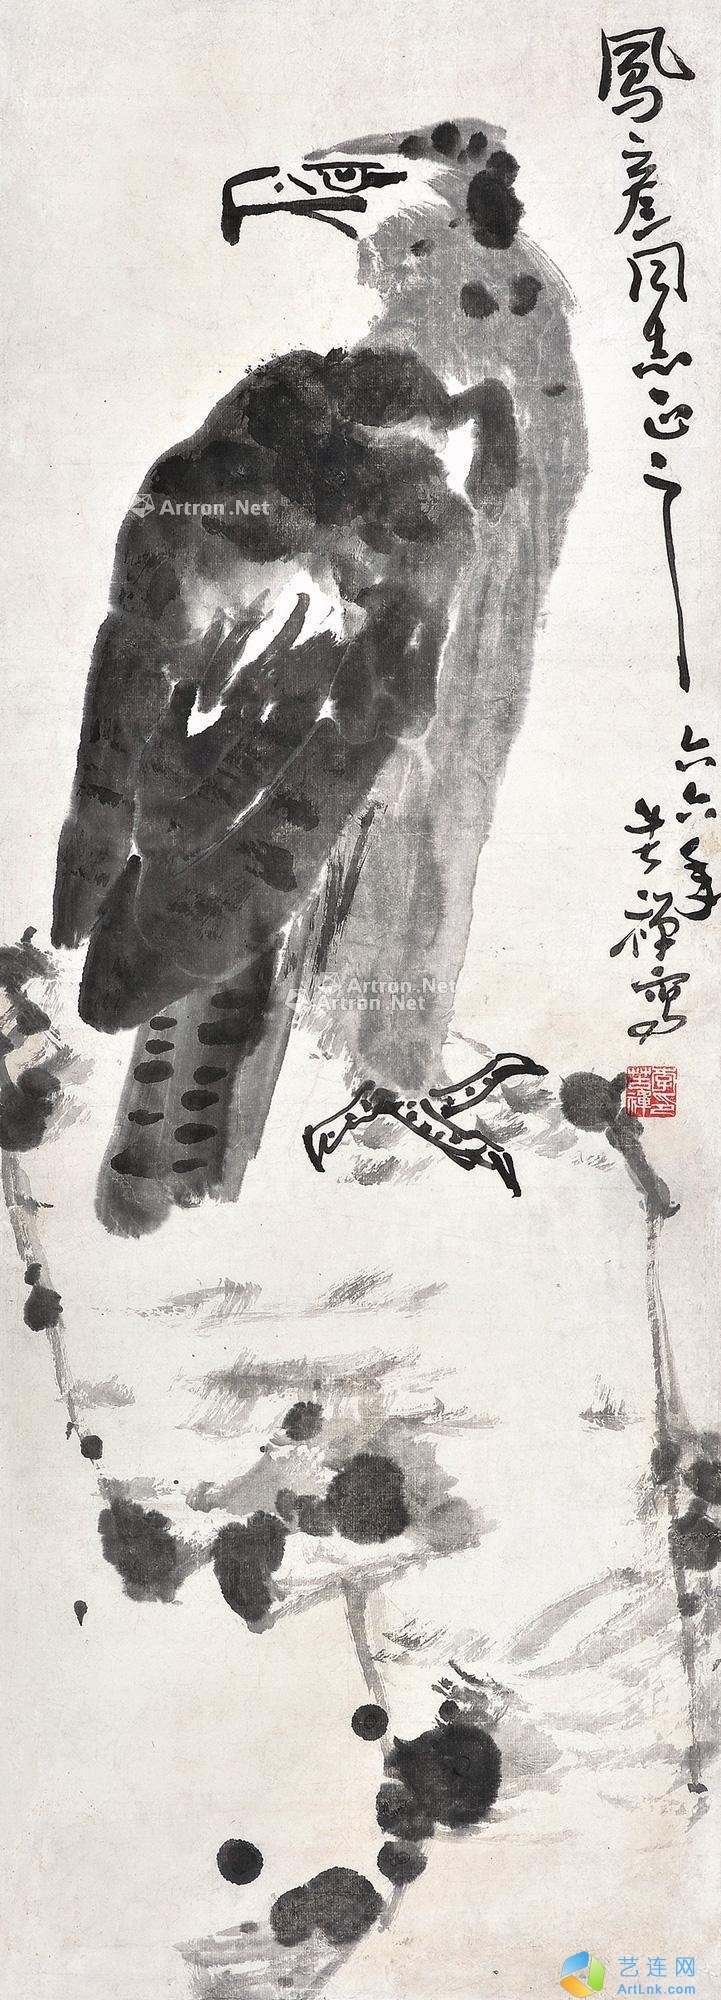 鳳彦同志正之
六六年
苦禪寫
李苦禪印
Artron.Net
Artron.Net
Artron.Net
艺连网
ArtLnk.com